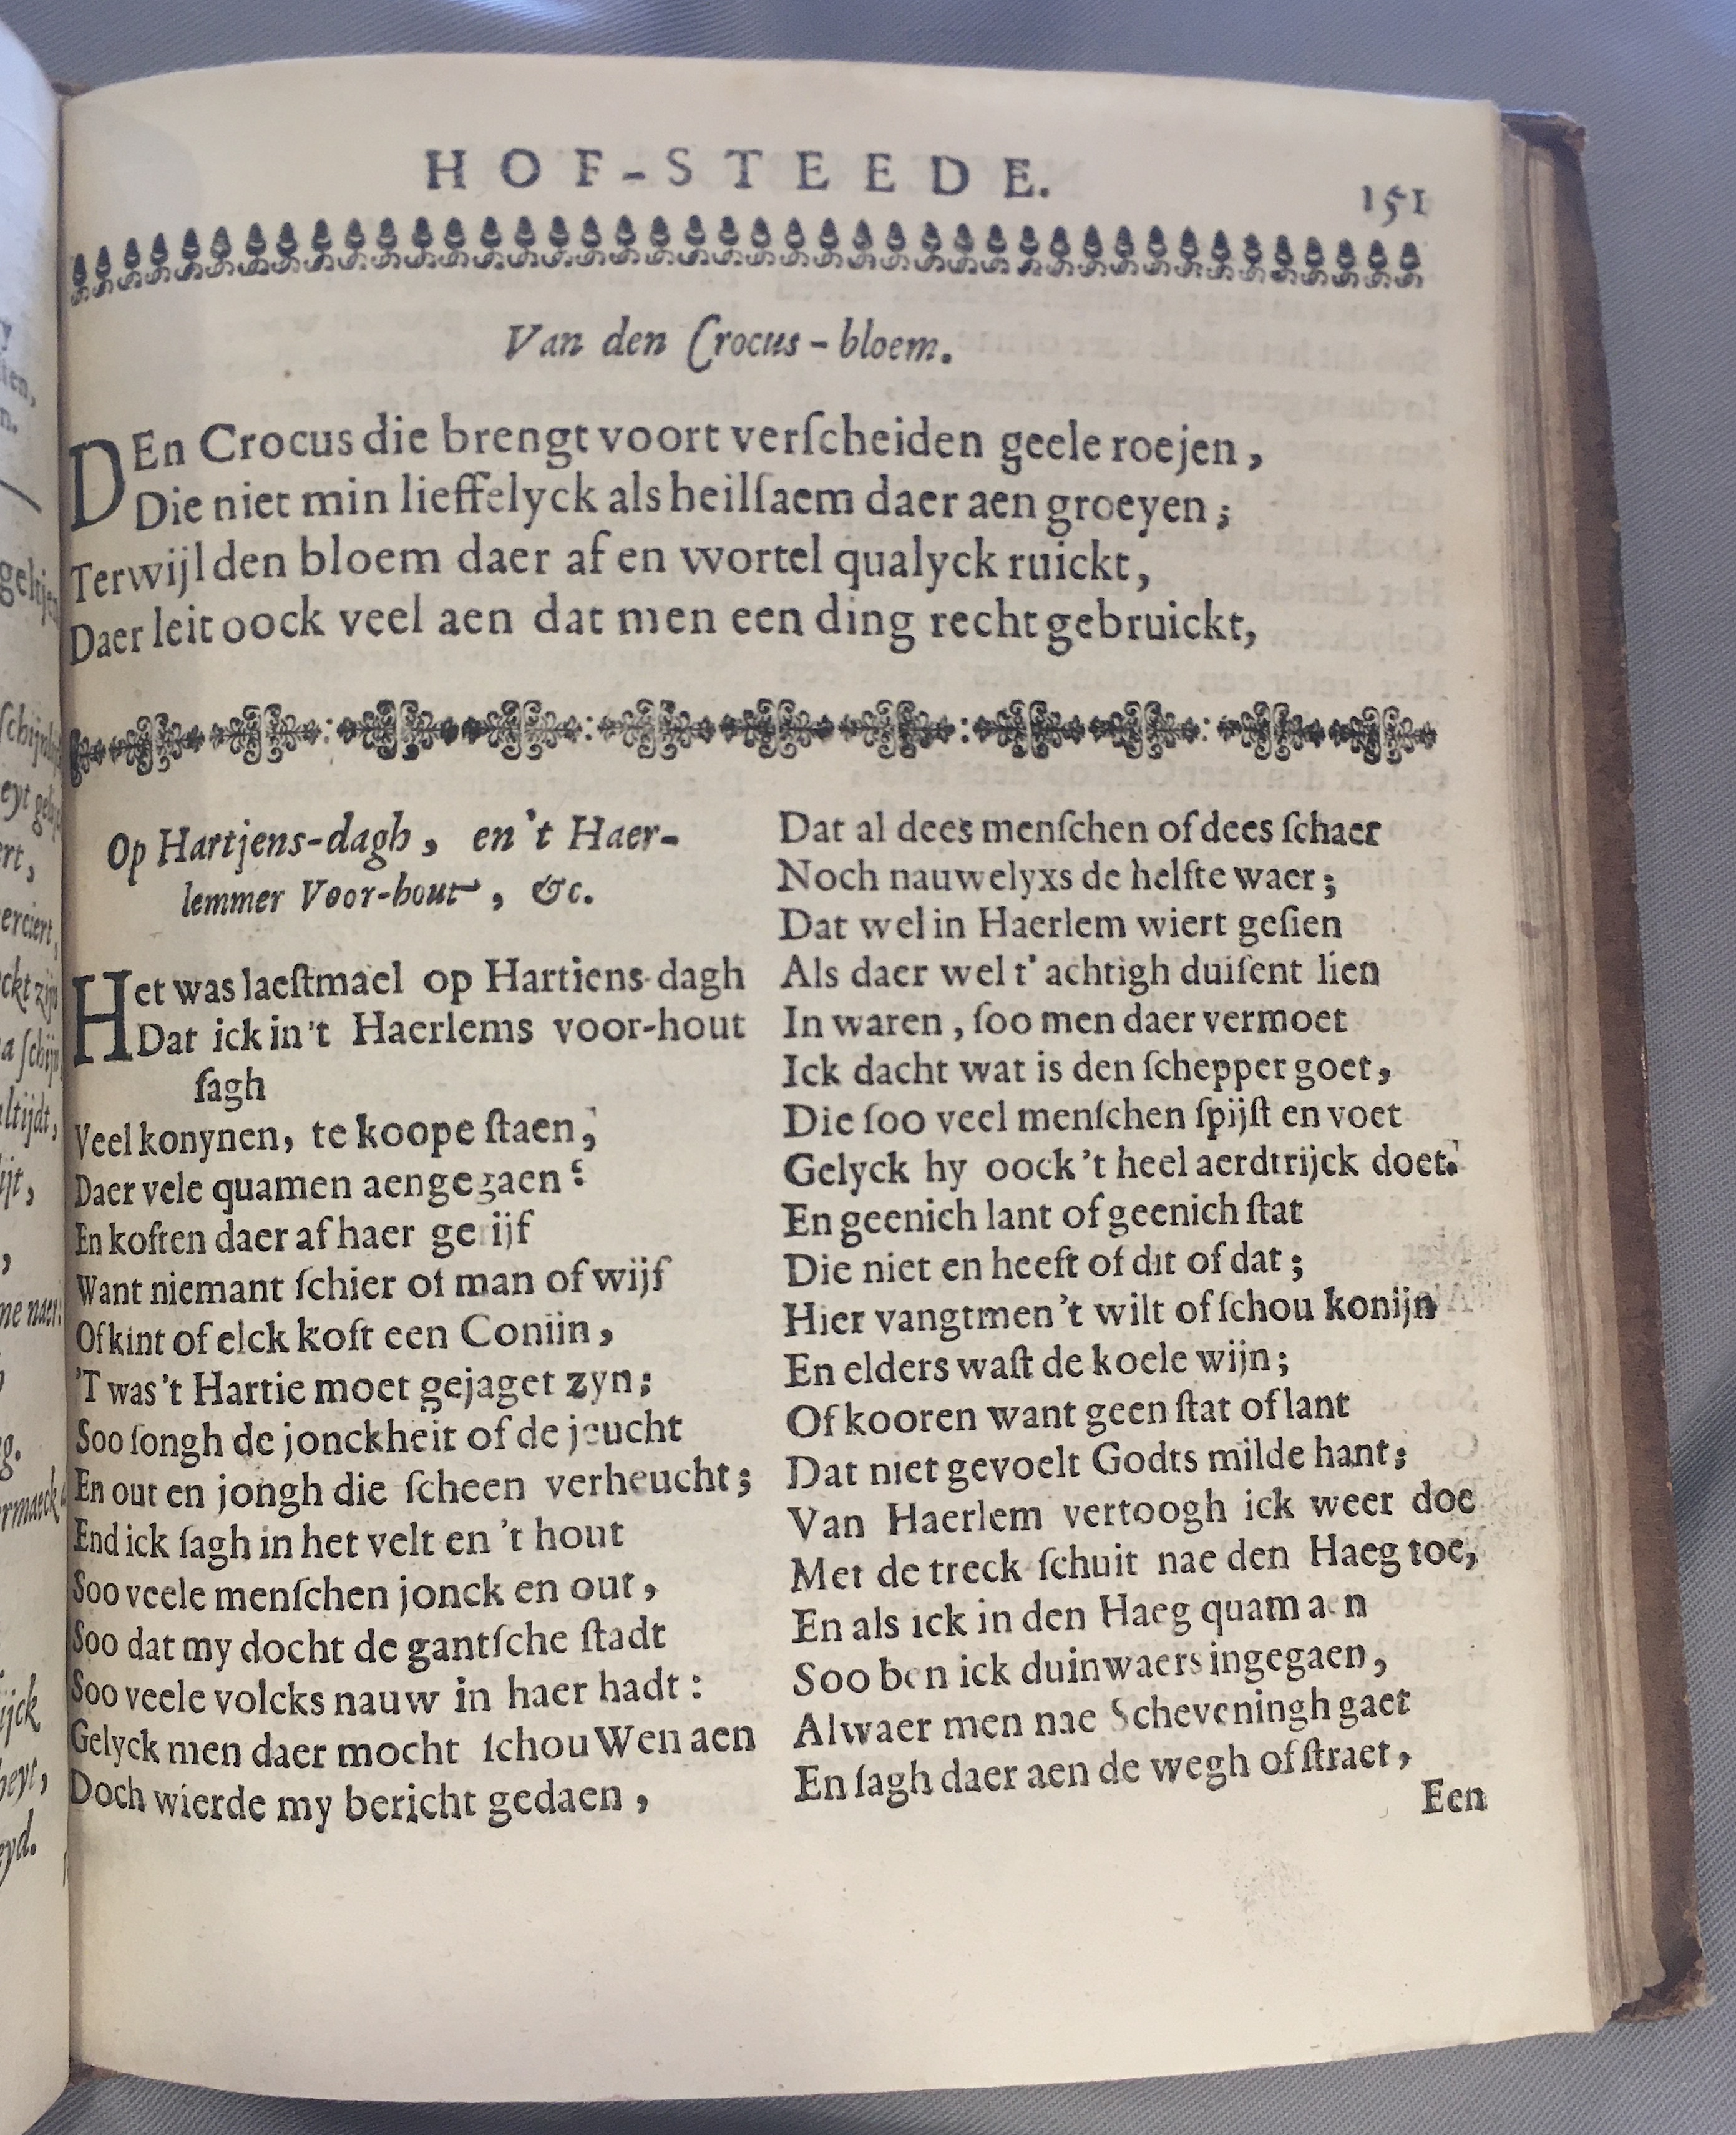 HOF-STEEDE. 151
Van den Crocus-bloem.
DEn Crocus die brengt voort verſcheiden geele roejen,
Die niet min lieffelyck als heilſaem daer aen groeyen;
Terwijl den bloem daer af en wortel qualyck ruickt,
Daer leit oock veel aen dat men een ding recht gebruickt,
Op Hartjens-dagh, en 't Haer-
lemmer Voor-hout, &c.
Het was laeſtmael op Hartiens-dagh
Dat ick in 't Haerlems voor-hout
ſagh
Veel konynen, te koope ſtaen,
Daer vele quamen aengegaen:
En koften daer af haer gerijf
Want niemant ſchier of man of wijf
Of kint of elck koft een Coniin,
'T was 't Hartie moet gejaget zyn;
Soo ſongh de jonckheit of de jeucht
En out en jongh die ſcheen verheucht;
End ick ſagh in het velt en 't hout
Soo veele menſchen jonck en out,
Soo dat my docht de gantſche ſtadt
Soo veele volcks nauw in haer hadt:
Gelyck men daer mocht ſchouWen aen
Doch wierde my bericht gedaen,
Dat al dees menſchen of dees ſchaer
Noch nauwelyxs de helfte waer;
Dat wel in Haerlem wiert geſien
Als daer wel t' achtigh duiſent lien
In waren, ſoo men daer vermoet
Ick dacht wat is den ſchepper goet,
Die ſoo veel menſchen ſpijſt en voet
Gelyck hy oock 't heel aerdtrijck doet.
En geenich lant of geenich ſtat
Die niet en heeft of dit of dat;
Hier vangtmen 't wilt of ſchou konijn
En elders waſt de koele wijn;
Of kooren want geen ſtat of lant
Dat niet gevoelt Godts milde hant;
Van Haerlem vertoogh ick weer doe
Met de treck ſchuit nae den Haeg toe,
En als ick in den Haeg quam aen
Soo ben ick duinwaers ingegaen,
Alwaer men nae Scheveningh gaet
En ſagh daer aen de wegh of ſtraet,
Een